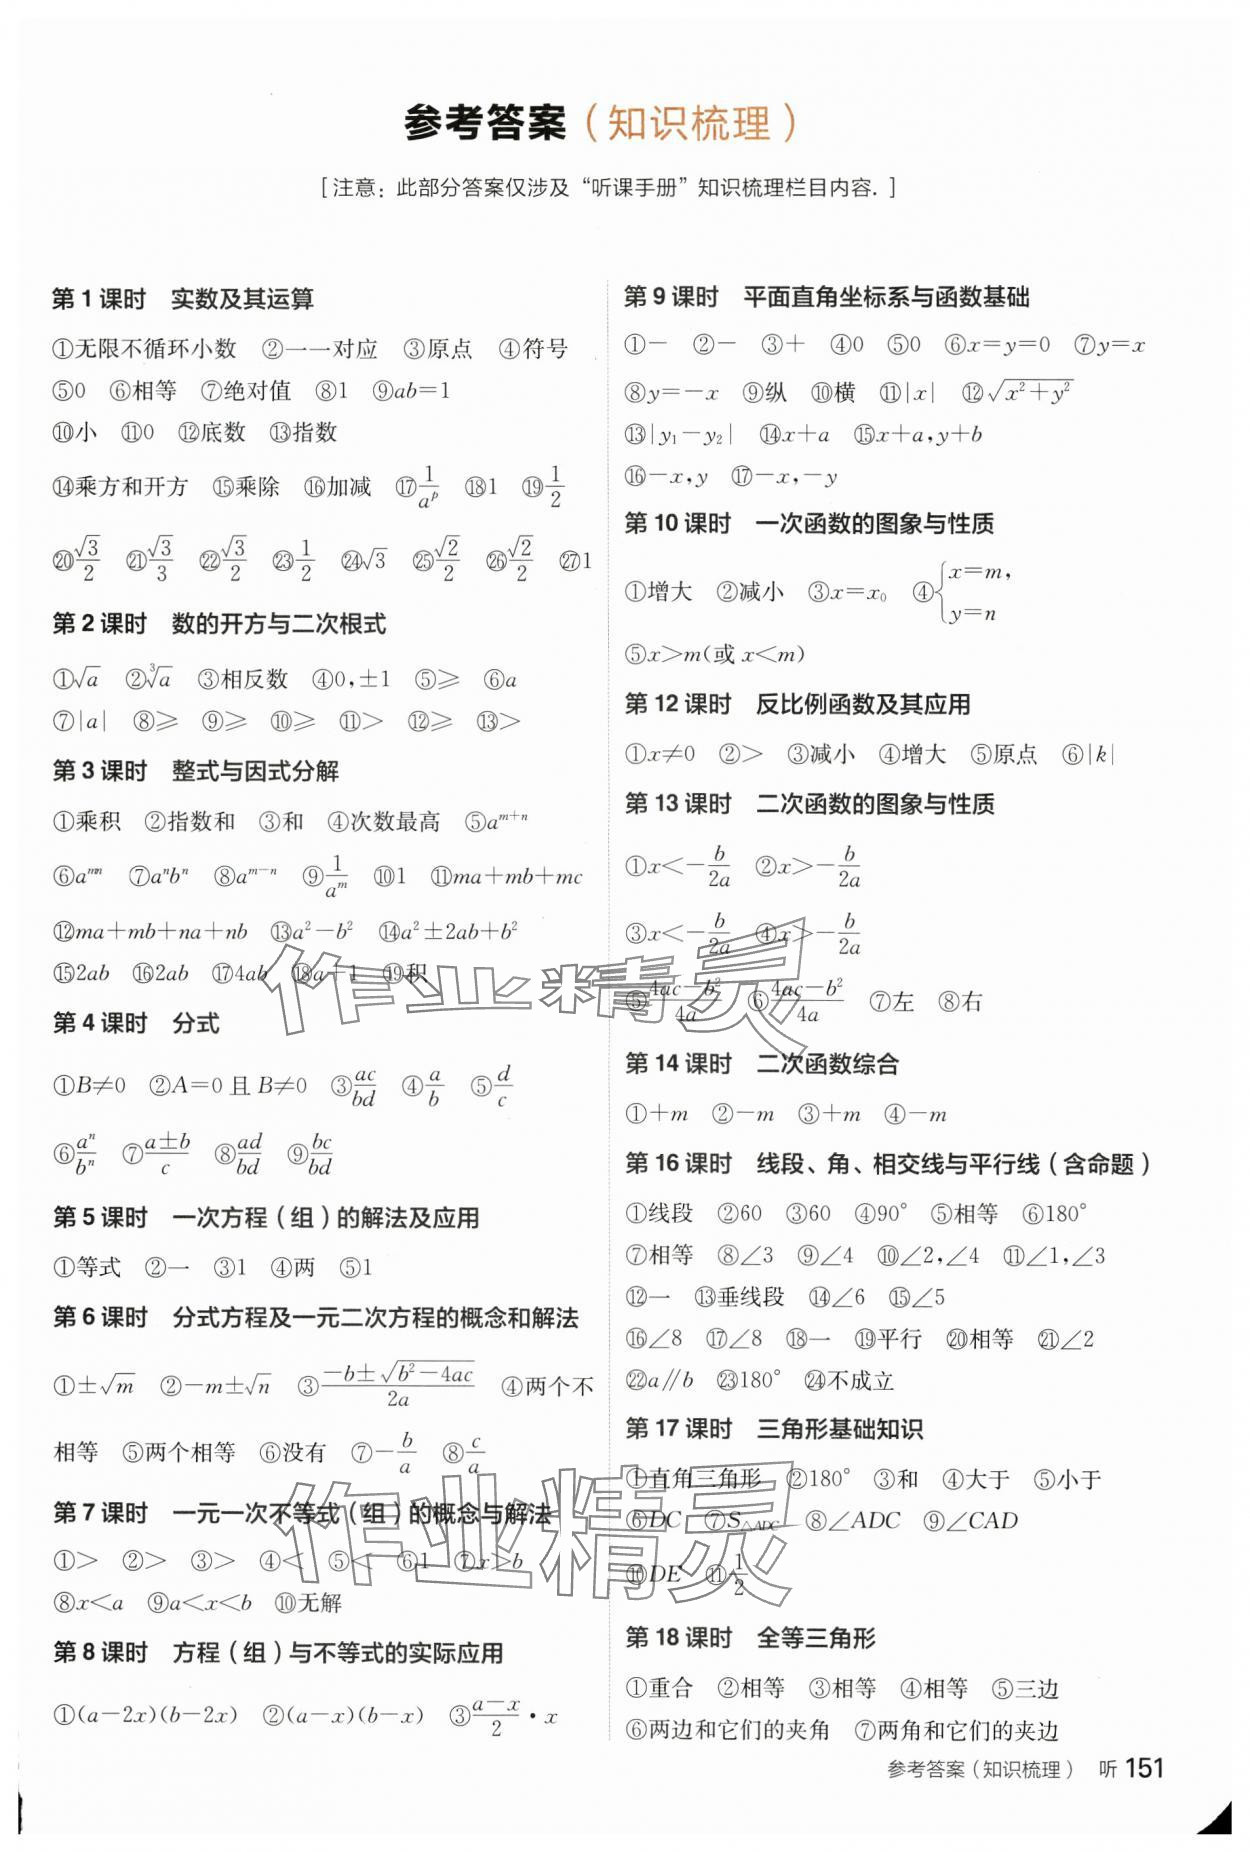 参考答案（知识梳理）
[注意：此部分答案仅涉及“听课手册”知识梳理栏目内容.]
第1课时 实数及其运算
①无限不循环小数 ②一一对应 ③原点 ④符号
⑤0 ⑥相等 ⑦绝对值 ⑧1 ⑨ab=1
⑩小 ⑪0 ⑫底数 ⑬指数
⑭乘方和开方 ⑮乘除 ⑯加减 ⑰1/a^p ⑱1 ⑲1/2
⑳√3/2 ㉑√3/3 ㉒√3/2 ㉓1/2 ㉔√3 ㉕√2/2 ㉖√2/2 ㉗1
第2课时 数的开方与二次根式
①√a ②∛a ③相反数 ④0,±1 ⑤≥ ⑥a
⑦|a| ⑧≥ ⑨≥ ⑩≥ ⑪> ⑫≥ ⑬>
第3课时 整式与因式分解
①乘积 ②指数和 ③和 ④次数最高 ⑤a^(m+n)
⑥a^(mn) ⑦a^n b^n ⑧a^(m-n) ⑨1/a^m ⑩1 ⑪ma+mb+mc
⑫ma+mb+na+nb ⑬a²-b² ⑭a²±2ab+b²
⑮2ab ⑯2ab ⑰4ab ⑱a-1 ⑲积
第4课时 分式
①B≠0 ②A=0且B≠0 ③ac/bd ④a/b ⑤d/c
⑥a^n/b^n ⑦(a±b)/c ⑧ad/bd ⑨bc/bd
第5课时 一次方程（组）的解法及应用
①等式 ②一 ③1 ④两 ⑤1
第6课时 分式方程及一元二次方程的概念和解法
①±√m ②-m±√n ③(-b±√(b²-4ac))/2a ④两个不
相等 ⑤两个相等 ⑥没有 ⑦-b/a ⑧c/a
第7课时 一元一次不等式（组）的概念与解法
①> ②> ③> ④< ⑤< ⑥1 ⑦x>b
⑧x<a ⑨a<x<b ⑩无解
第8课时 方程（组）与不等式的实际应用
①(a-2x)(b-2x) ②(a-x)(b-x) ③(a-x)/2·x
第9课时 平面直角坐标系与函数基础
①- ②- ③+ ④0 ⑤0 ⑥x=y=0 ⑦y=x
⑧y=-x ⑨纵 ⑩横 ⑪|x| ⑫√(x²+y²)
⑬|y₁-y₂| ⑭x+a ⑮x+a,y+b
⑯-x,y ⑰-x,-y
第10课时 一次函数的图象与性质
①增大 ②减小 ③x=x₀ ④{x=m,
y=n
⑤x>m(或x<m)
第12课时 反比例函数及其应用
①x≠0 ②> ③减小 ④增大 ⑤原点 ⑥|k|
第13课时 二次函数的图象与性质
①x<-b/2a ②x>-b/2a
③x<-b/2a ④x>-b/2a
⑤(4ac-b²)/4a ⑥(4ac-b²)/4a ⑦左 ⑧右
第14课时 二次函数综合
①+m ②-m ③+m ④-m
第16课时 线段、角、相交线与平行线（含命题）
①线段 ②60 ③60 ④90° ⑤相等 ⑥180°
⑦相等 ⑧∠3 ⑨∠4 ⑩∠2,∠4 ⑪∠1,∠3
⑫一 ⑬垂线段 ⑭∠6 ⑮∠5
⑯∠8 ⑰∠8 ⑱一 ⑲平行 ⑳相等 ㉑∠2
㉒a∥b ㉓180° ㉔不成立
第17课时 三角形基础知识
①直角三角形 ②180° ③和 ④大于 ⑤小于
⑥DC ⑦S△ADC ⑧∠ADC ⑨∠CAD
⑩DE ⑪1/2
第18课时 全等三角形
①重合 ②相等 ③相等 ④相等 ⑤三边
⑥两边和它们的夹角 ⑦两角和它们的夹边
参考答案（知识梳理） 听 151
作业精灵
作业精灵